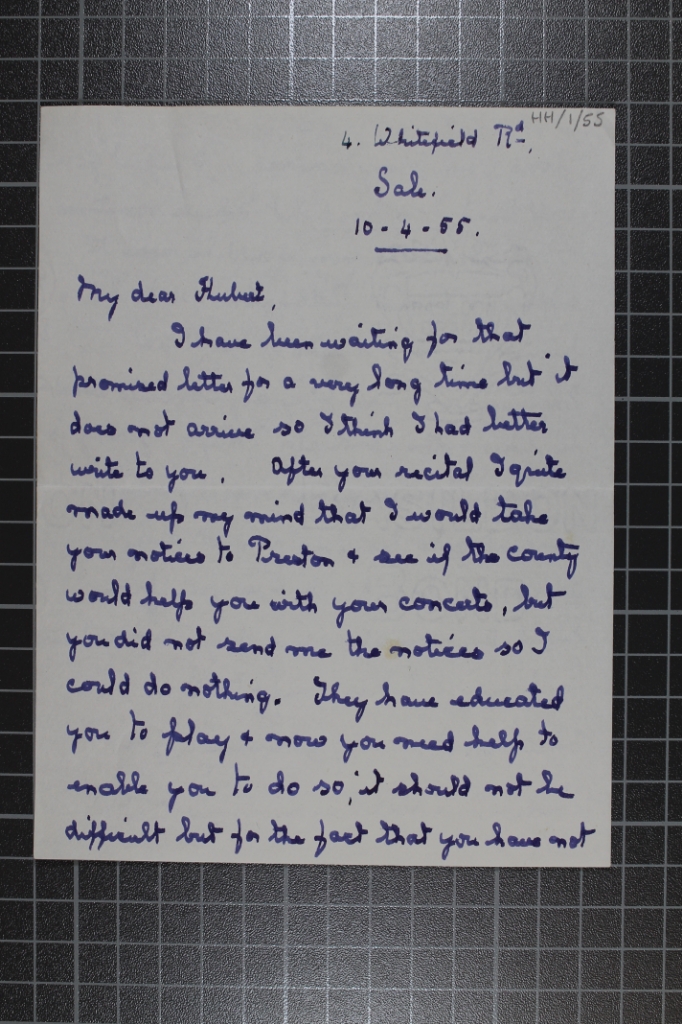 HH/1/55
4. Whitefield Rd,
Sale.
10-4-55.
My dear Hubert,
I have been waiting for that
promised letter for a very long time but it
does not arrive so I think I had better
write to you. After your recital I quite
made up my mind that I would take
your notices to Preston & see if the county
would help you with your concerts, but
you did not send me the notices so I
could do nothing. They have educated
you to play & now you need help to
enable you to do so; it should not be
difficult but for the fact that you have not